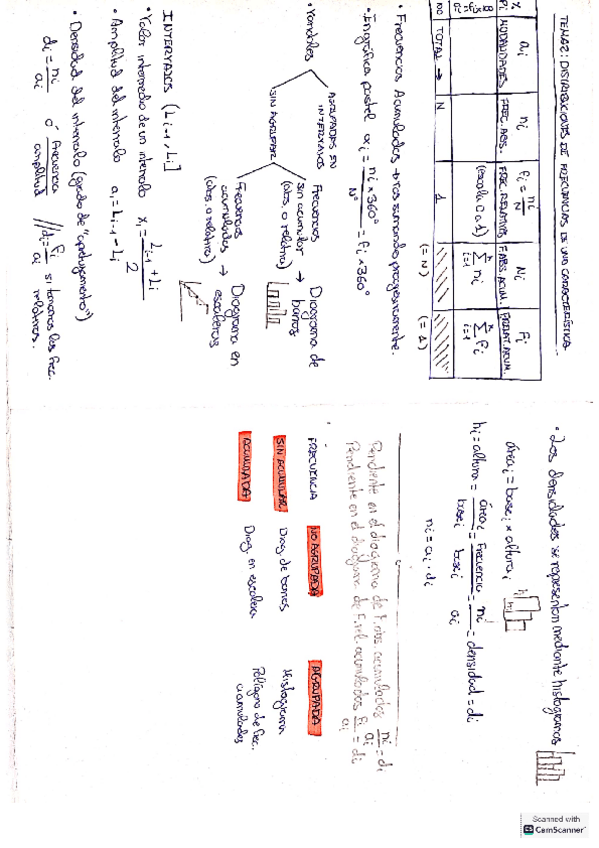 TEMA 2: DISTRIBUCIONES DE FRECUENCIAS DE UNA CARACTERÍSTICA
ai ni fi = ni/N Ni Fi
MODALIDADES FREC. ABS. FREC. RELATIVAS F.ABS. ACUM. F.RELAT. ACUM.
(escala 0 a 1) Σ ni i=1 Σ fi i=1
TOTAL → N 1
(=N) (=1)
• Frecuencias Acumuladas → vas sumando progresivamente.
• En gráfica pastel αi = ni x 360° / N° = fi x 360°
• Variables
AGRUPADAS EN INTERVALOS
SIN AGRUPAR
Frecuencias sin acumular (abs. o relativa) → Diagrama de barras
Frecuencias acumuladas (abs. o relativa) → Diagrama en escaleras
INTERVALOS (Li-1, Li]
• Valor intermedio de un intervalo xi = Li-1 + Li / 2
• Amplitud del intervalo ai = Li-1 - Li
• Densidad del intervalo (grado de "apelotonamiento")
di = ni/ai ó frecuencia/amplitud // di = fi/ai si tomamos las frec. relativas.
• Las densidades se representan mediante histogramas
áreai = basei x alturai
hi = altura = áreai/basei = frecuencia/basei = ni/ai = densidad = di
ni = ai · di
Pendiente en el diagrama de f.abs. acumuladas ni/ai = di
Pendiente en el diagrama de f.rel. acumuladas fi/ai = di
FRECUENCIA NO AGRUPADA AGRUPADA
SIN ACUMULAR Diag. de barras Histograma
ACUMULADA Diag. en escalera Polígono de frec. acumuladas
Scanned with
CamScanner